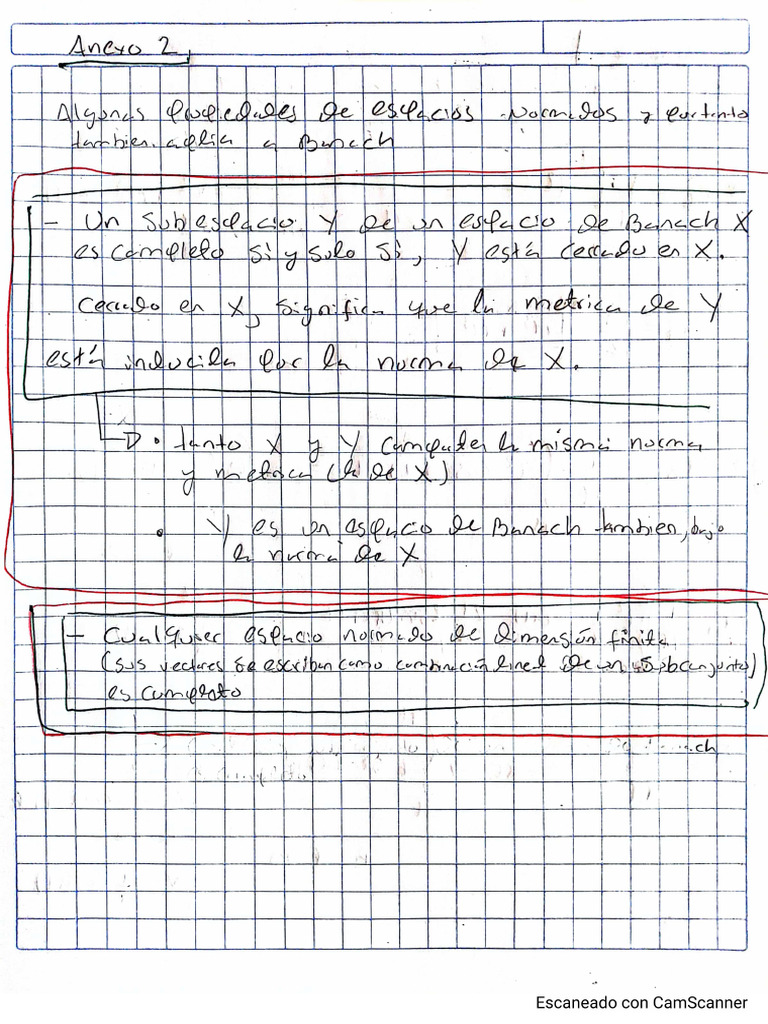 Anexo 2,
Algunas propiedades de espacios Normados y portanto
tambien aplia a Banach
- Un subespacio Y de un espacio de Banach X
es completo si y solo si, Y está cerrado en X.
cerrado en X, significa que la metrica de Y
está inducida por la norma de X.
• tanto X y Y comparten la misma norma
y metrica (la de X)
• Y es un espacio de Banach tambien, bajo
la norma de X
- Cualquier espacio normado de dimensión finita
(sus vectores se escriban como combinación lineal de un subconjunto)
es completo
ch
Escaneado con CamScanner